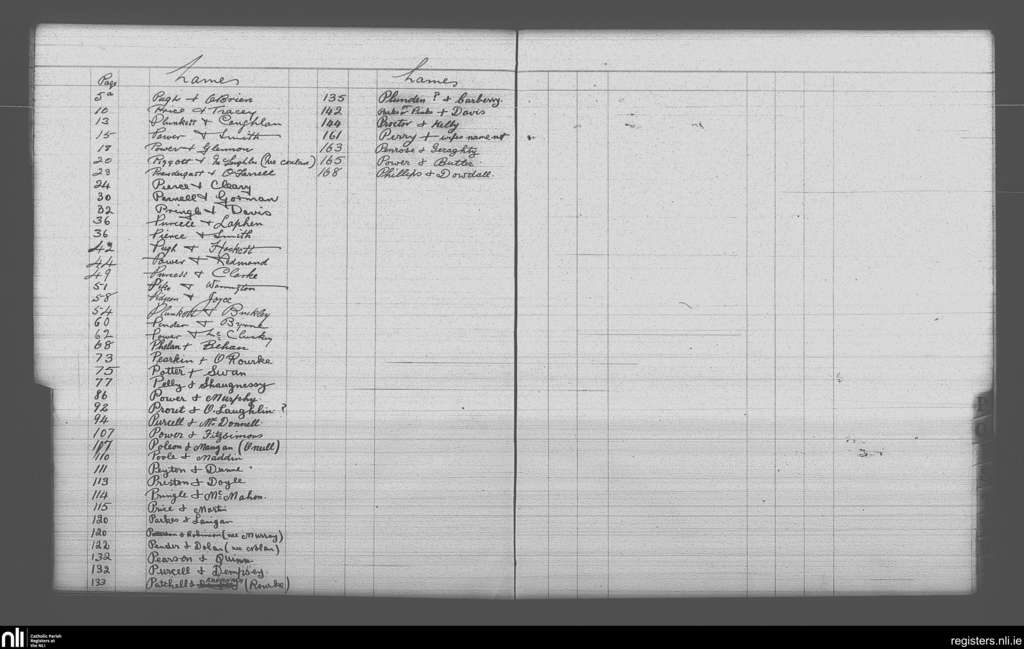 Page Names
5a Pugh & O'Brien
10 Price & Tracey
13 Plunkett & Coughlan
15 Power & Smith
18 Power & Glennon
20 Piggott & McLoughlin
23 Prendergast & O'Farrell
24 Pierce & Cleary
30 Parnell & Gorman
32 Pringle & Davis
36 & Laphen
36 Pierce & Smith
42 Pugh & Hackett
44 Power & Redmond
49 & Clarke
51 Pike & Warrington
58 & Joyce
54 Plunkett & Buckley
60 Pender & Byrne
62 Power & Mc Cluskey
68 Phelan & Behan
73 Pearkin & O'Rourke
75 Potter & Swan
77 Pelly & Shaugnessy
86 Power & Murphy
92 Prout & O'Laughlin ?
94 Purcell & Mc Donnell
107 Power & Fitzsimons
107 Poleon & Mangan (O'Neill)
110 Poole & Maddin
111 Peyton & Dunne
113 Preston & Doyle
114 Pringle & McMahon.
115 Price & Martin
120 Parkes & Langan
120 & Robinson (nee Murray)
122 Pender & Dolan (nee Nolan)
132 Pearson & Quinn
132 Purcell & Dempsey.
133 Patchell & (Rourke)
Names
135 Plunden ? & Carberry.
142 Parks or Parks & Davis
144 Proctor & Kelly
161 Perry & wifes name not
163 Penrose & Geraghty
165 Power & Butler
168 Phillips & Dowdall.
nli Catholic Parish
Registers at
the NLI
registers.nli.ie